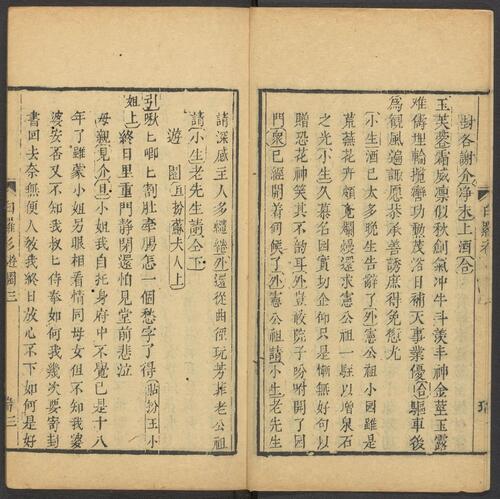 對各謝介淨末上酒合
玉芙蓉霜威凛似秋劍氣冲牛斗羨丰神金莖玉露
难儔埋輪攬轡功勲茂浴日補天事業優合驅車後
為観風遍諏愿恭承善謗虛得免愆尤
小生酒已太多晚生告辭了外憲公祖小園雖是
荒蕪花卉頗竟爛熳還求憲公祖一駐以增泉石
之光小生久慕名园實切企仰只是慚無好句以
贈恐花神笑其不韵耳外豈敢院子吩咐開了园
門衆已經開着伺候了外憲公祖請小生老先生
請深感主人多繾綣外還從曲徑玩芳推老公祖
請小生老先生請仝下
遊園丑扮蘇夫人上
引啾七唧七割肚牽腸怎一個愁字了得貼扮王小
姐上終日里重門静閉還怕見堂前悲泣
母親見介旦小姐我自托身府中不覺已是十八
年了雖蒙小姐另眼相看情同母女但不知我婆
婆安否又不知我叔七侍奉如何我幾次要寄封
書回去奈無便人教我終日放心不下如何是好
白羅衫 遊園 三